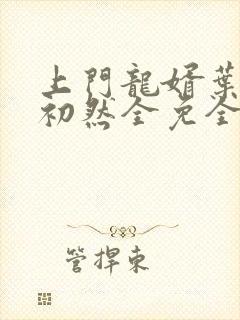 上門龍婿葉
初然全免全
管捍東